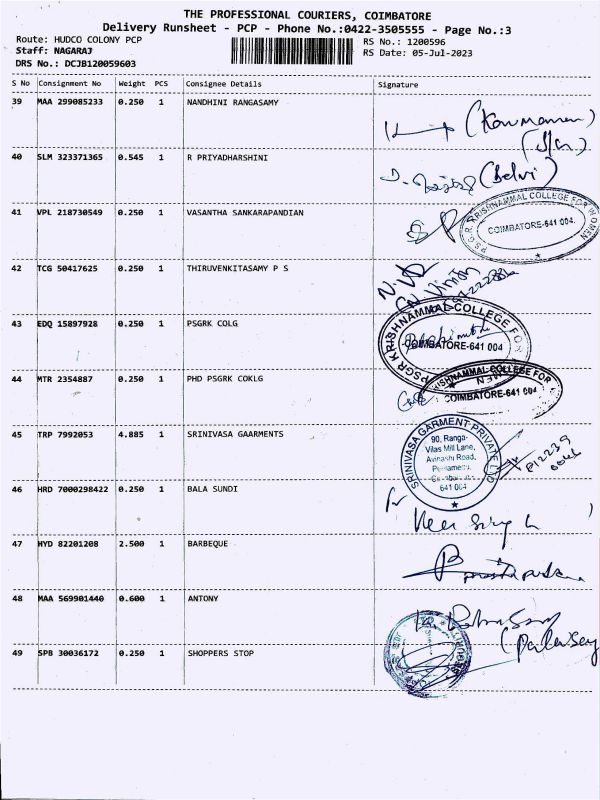 THE PROFESSIONAL COURIERS, COIMBATORE
Delivery Runsheet - PCP - Phone No.:0422-3505555 - Page No.:3
Route: HUDCO COLONY PCP
RS No.: 1200596
Staff: NAGARAJ
RS Date: 05-Jul-2023
DRS No.: DCJB120059603
S No Consignment No Weight PCS Consignee Details Signature
39 MAA 299085233 0.250 1 NANDHINI RANGASAMY
40 SLM 323371365 0.545 1 R PRIYADHARSHINI
(Selvi)
41 VPL 218730549 0.250 1 VASANTHA SANKARAPANDIAN
P.S.G.R. KRISHNAMMAL COLLEGE FOR WOMEN
COIMBATORE-641 004.
42 TCG 50417625 0.250 1 THIRUVENKITASAMY P S
43 EDQ 15897928 0.250 1 PSGRK COLG
PSGR KRISHNAMMAL COLLEGE FOR WOMEN
COIMBATORE-641 004
44 MTR 2354887 0.250 1 PHD PSGRK COKLG
KRISHNAMMAL COLLEGE FOR
COIMBATORE-641 004
45 TRP 7992053 4.885 1 SRINIVASA GAARMENTS
SRINIVASA GARMENT PRIVATE LTD
90, Ranga-
Vilas Mill Lane,
Avinashi Road,
Peelamedu,
Coimbatore
641 004
46 HRD 7000298422 0.250 1 BALA SUNDI
Veer Singh
47 HYD 82201208 2.500 1 BARBEQUE
48 MAA 569901440 0.600 1 ANTONY
49 SPB 30036172 0.250 1 SHOPPERS STOP